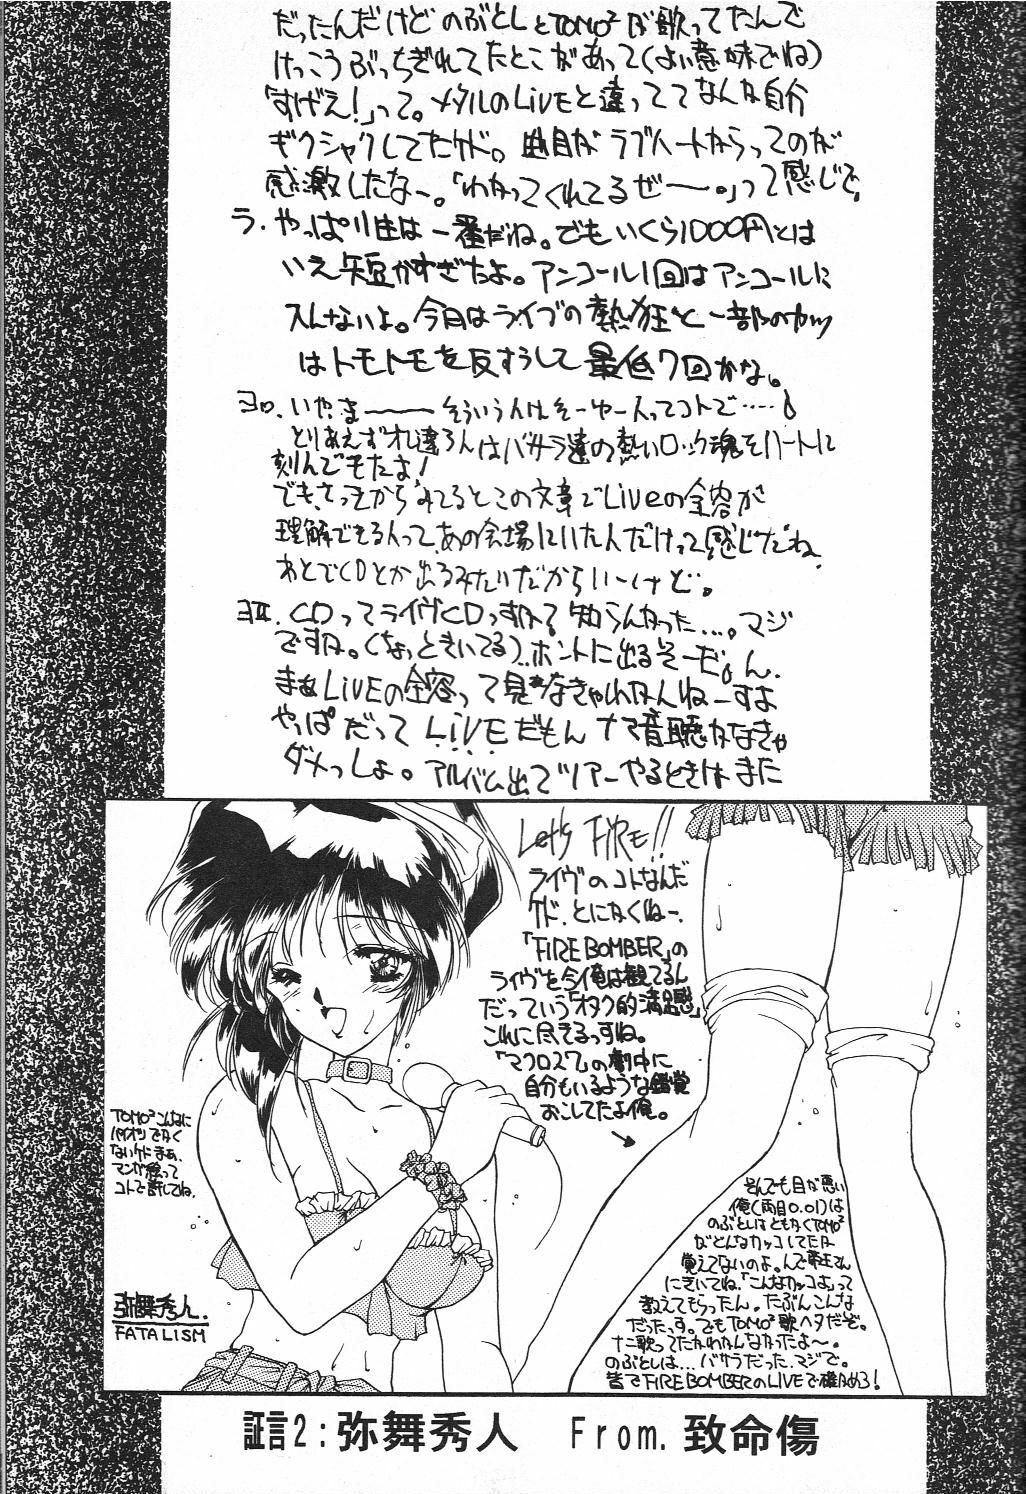 だったんだけどのぶとしとTOMO²が歌ってたんで
けっこうぶっちぎれてたとこがあって(よい意味でね)
「すげえ!」って。メタルのLiVEと違っててなんか自分
ギクシャクしてたケド。曲目がラブハートからってのが
感激したなー。「わかってくれてるゼー。」って感じで。
ラ. やっぱり生は一番だね。でもいくら1000円とは
いえ短かすぎたよ。アンコール1回はアンコールに
入んないよ。今日はライブの熱狂と一部のヤツ
はトモトモを反すうして最低7回かな。
ヨロ. いや、まーーーそういう人はそーゆー人ってコトで……
とりあえずオレ達3人はバサラ達の熱いロック魂をハートに
刻んでもたよ!
でもさっきからみてるとこの文章でLiveの全容が
理解できる人って、あの会場にいた人だけって感じだね
あとでCDとか出るみたいだからいーけど。
CDってライヴCDっすね? 知らんかった…。マジ
ですね。(ちょっときいてる)…ホントに出るそーだ。ん、
まぁLiVEの全容って見なきゃわかんねーすよ
やっぱだってLiVEだもんナマ音聴かなきゃ
ダメっしょ。アルバム出てツアーやるときはまた
Let's FiRe!!
ライヴのコトなんだ
ケド、とにかくねー、
「FIRE BOMBER」の
ライヴを今俺は観てるん
だっていう「オタク的満足感」
これに尽きるっすね。
「マクロス7」の劇中に
自分もいるような錯覚
おこしてたよ俺。
TOMO²こんなに
パイオツでかく
ないケドまぁ、
マンガ絵って
コトで許してね。
弥舞秀人.
FATALISM
そんでも目が悪い
俺(両目0.01)は
のぶとしはともかくTOMO²
がどんなカッコしてたか
覚えてないのよ。んで弟さん
にきいてね、「こんなカッコよ」って
教えてもらったん。たぶんこんな
だったっす。でもTOMO²歌ヘタだぞ。
ナニ歌ってたかわかんなかったよ〜。
のぶとしは…バサラだった、マジで。
皆でFIRE BOMBERのLIVEで確かめろ!
証言2:弥舞秀人 From.致命傷